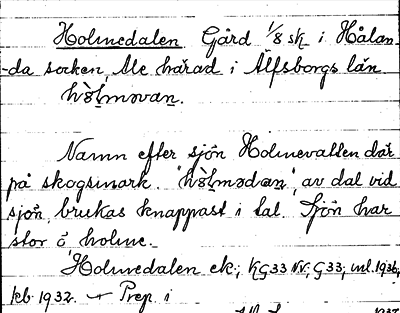 Holmedalen Gård 1/8 sk i Hålan-
-da socken, Ale härad i Älfsborgs län.
hòlməvan.
Namn efter sjön Holmevatten där
på skogsmark. hòlmədan, av dal vid
sjön, brukas knappast i tal. Sjön har
stor ö holme.
Holmedalen ek., KG33 NV; G33; ml. 1936,
kb 1932. Prep. i